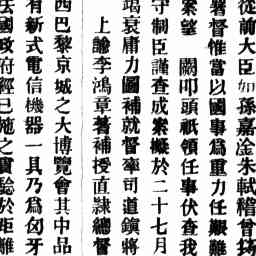 從前大臣如孫嘉淦朱軾稽曾筠
署督惟當以國事爲重力任艱難
案望 闕叩頭祇領任事伏查我
守制臣謹查成案概於二十七月
竭衰庸力圖補就督率司道鎮將
上諭李鴻章著補授直隷總督
西巴黎京城之大博覽會其中品
有新式電信機器一具乃爲匈牙
法國政府經已施之實騐於距離